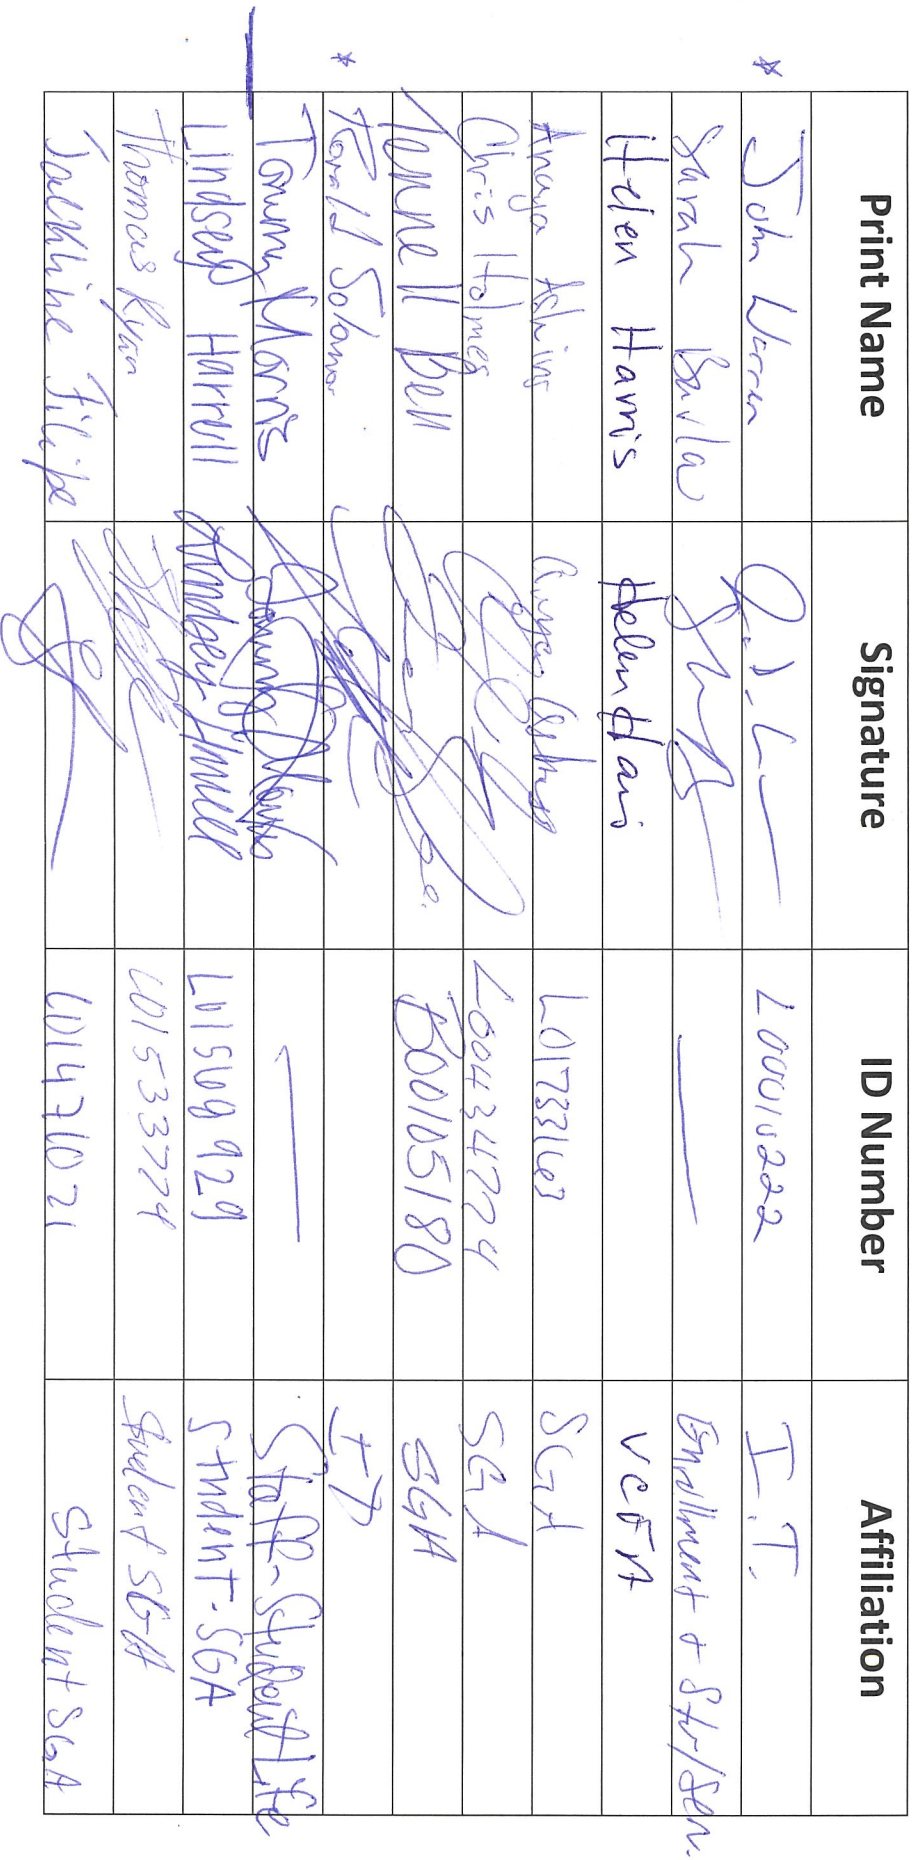 Print Name Signature ID Number Affiliation
* John Warren L00010222 I.T.
Sarah Bavla Enrollment + Stu/Serv.
Helen Harris Helen Harris VCFA
Anaya Askins SGA
Chris Holmes L00434724 SGA
Tennell Bell B00105180 SGA
* Ronald Solomon IT
Tommy Morris Staff-Student Life
Lindsey Harrell Lindsey Harrell L01569929 Student-SGA
Thomas Ryan L01533774 Student SGA
Filipe Student SGA